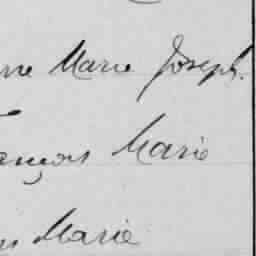 Marie Joseph.
ançois Marie
Marie